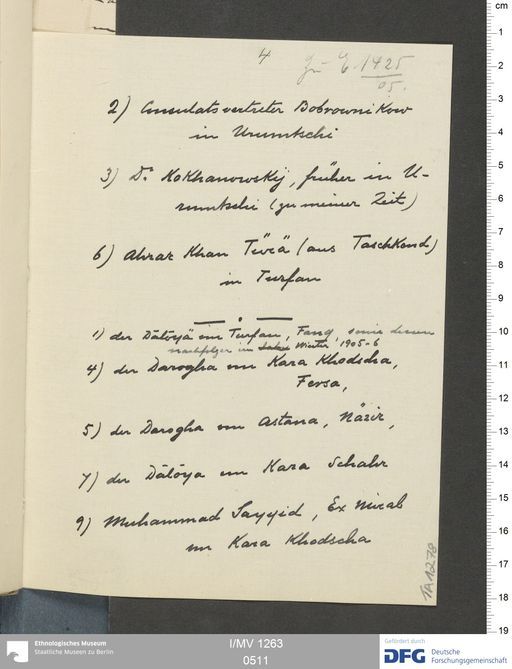 4
zu E. 1425
05.
2) Consulatsvertreter Bobrownikow
in Urumtschi
3) Dr Kokhanowskij, früher in U-
rumtschi (zu meiner Zeit)
6) Ahrar Khan Türä (aus Taschkend)
in Turfan
1) der Dātōyä von Turfan, Fang, sowie dessen
nachfolger im Winter 1905-6
4) der Darogha von Kara Khodscha,
Fersa,
5) der Darogha von Astana, Näzir,
7) der Dātōya von Kara Schahr
9) Muhammad Sayyid, Ex Mirab
von Kara Khodscha
TA 16278
cm
1
2
3
4
5
6
7
8
9
10
11
12
13
14
15
16
17
18
19
Ethnologisches Museum
Staatliche Museen zu Berlin
I/MV 1263
0511
Gefördert durch
DFG Deutsche
Forschungsgemeinschaft